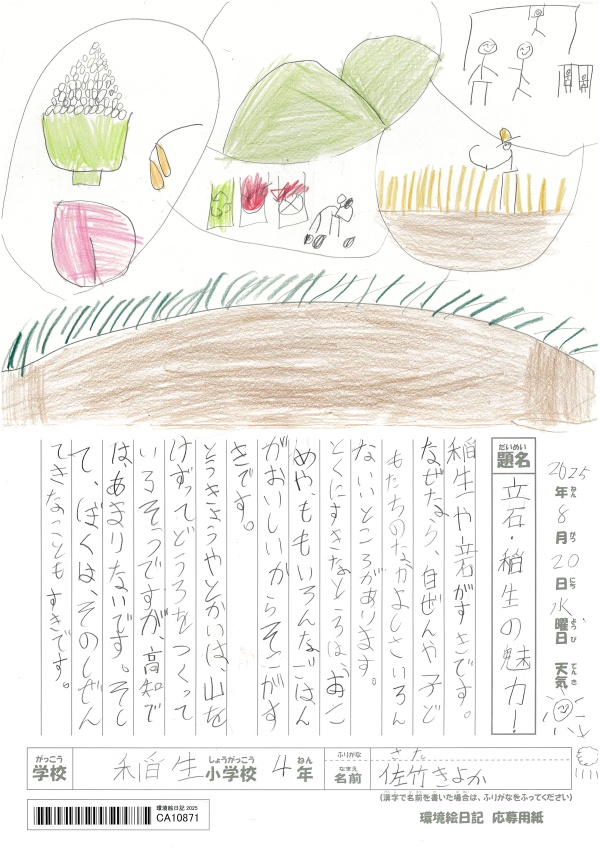 2025年ねん8月がつ20日にち水曜日ようび 天気てんき
だいめい
題名
立石・稲生の魅力!
稲生や立石がすきです。
なぜなら、自ぜんや子ど
もたちのなかよしさいろん
ないところがあります。
とくにすきなところは、おこ
めや、ももいろんなごはん
がおいしいからそこがす
きです。
とうきょうやとかいは、山を
けずってどうろをつくって
いるそうですが、高知で
は、あまりないです。そし
て、ぼくは、そのしぜん
てきなっこともすきです。
がっこう
学校
稲生 小学校しょうがっこう 4年ねん
ふりがな
さた
なまえ
名前
佐竹きよか
(漢字で名前を書いた場合は、ふりがなをふってください)
環境絵日記 2025
CA10871
環境絵日記 応募用紙